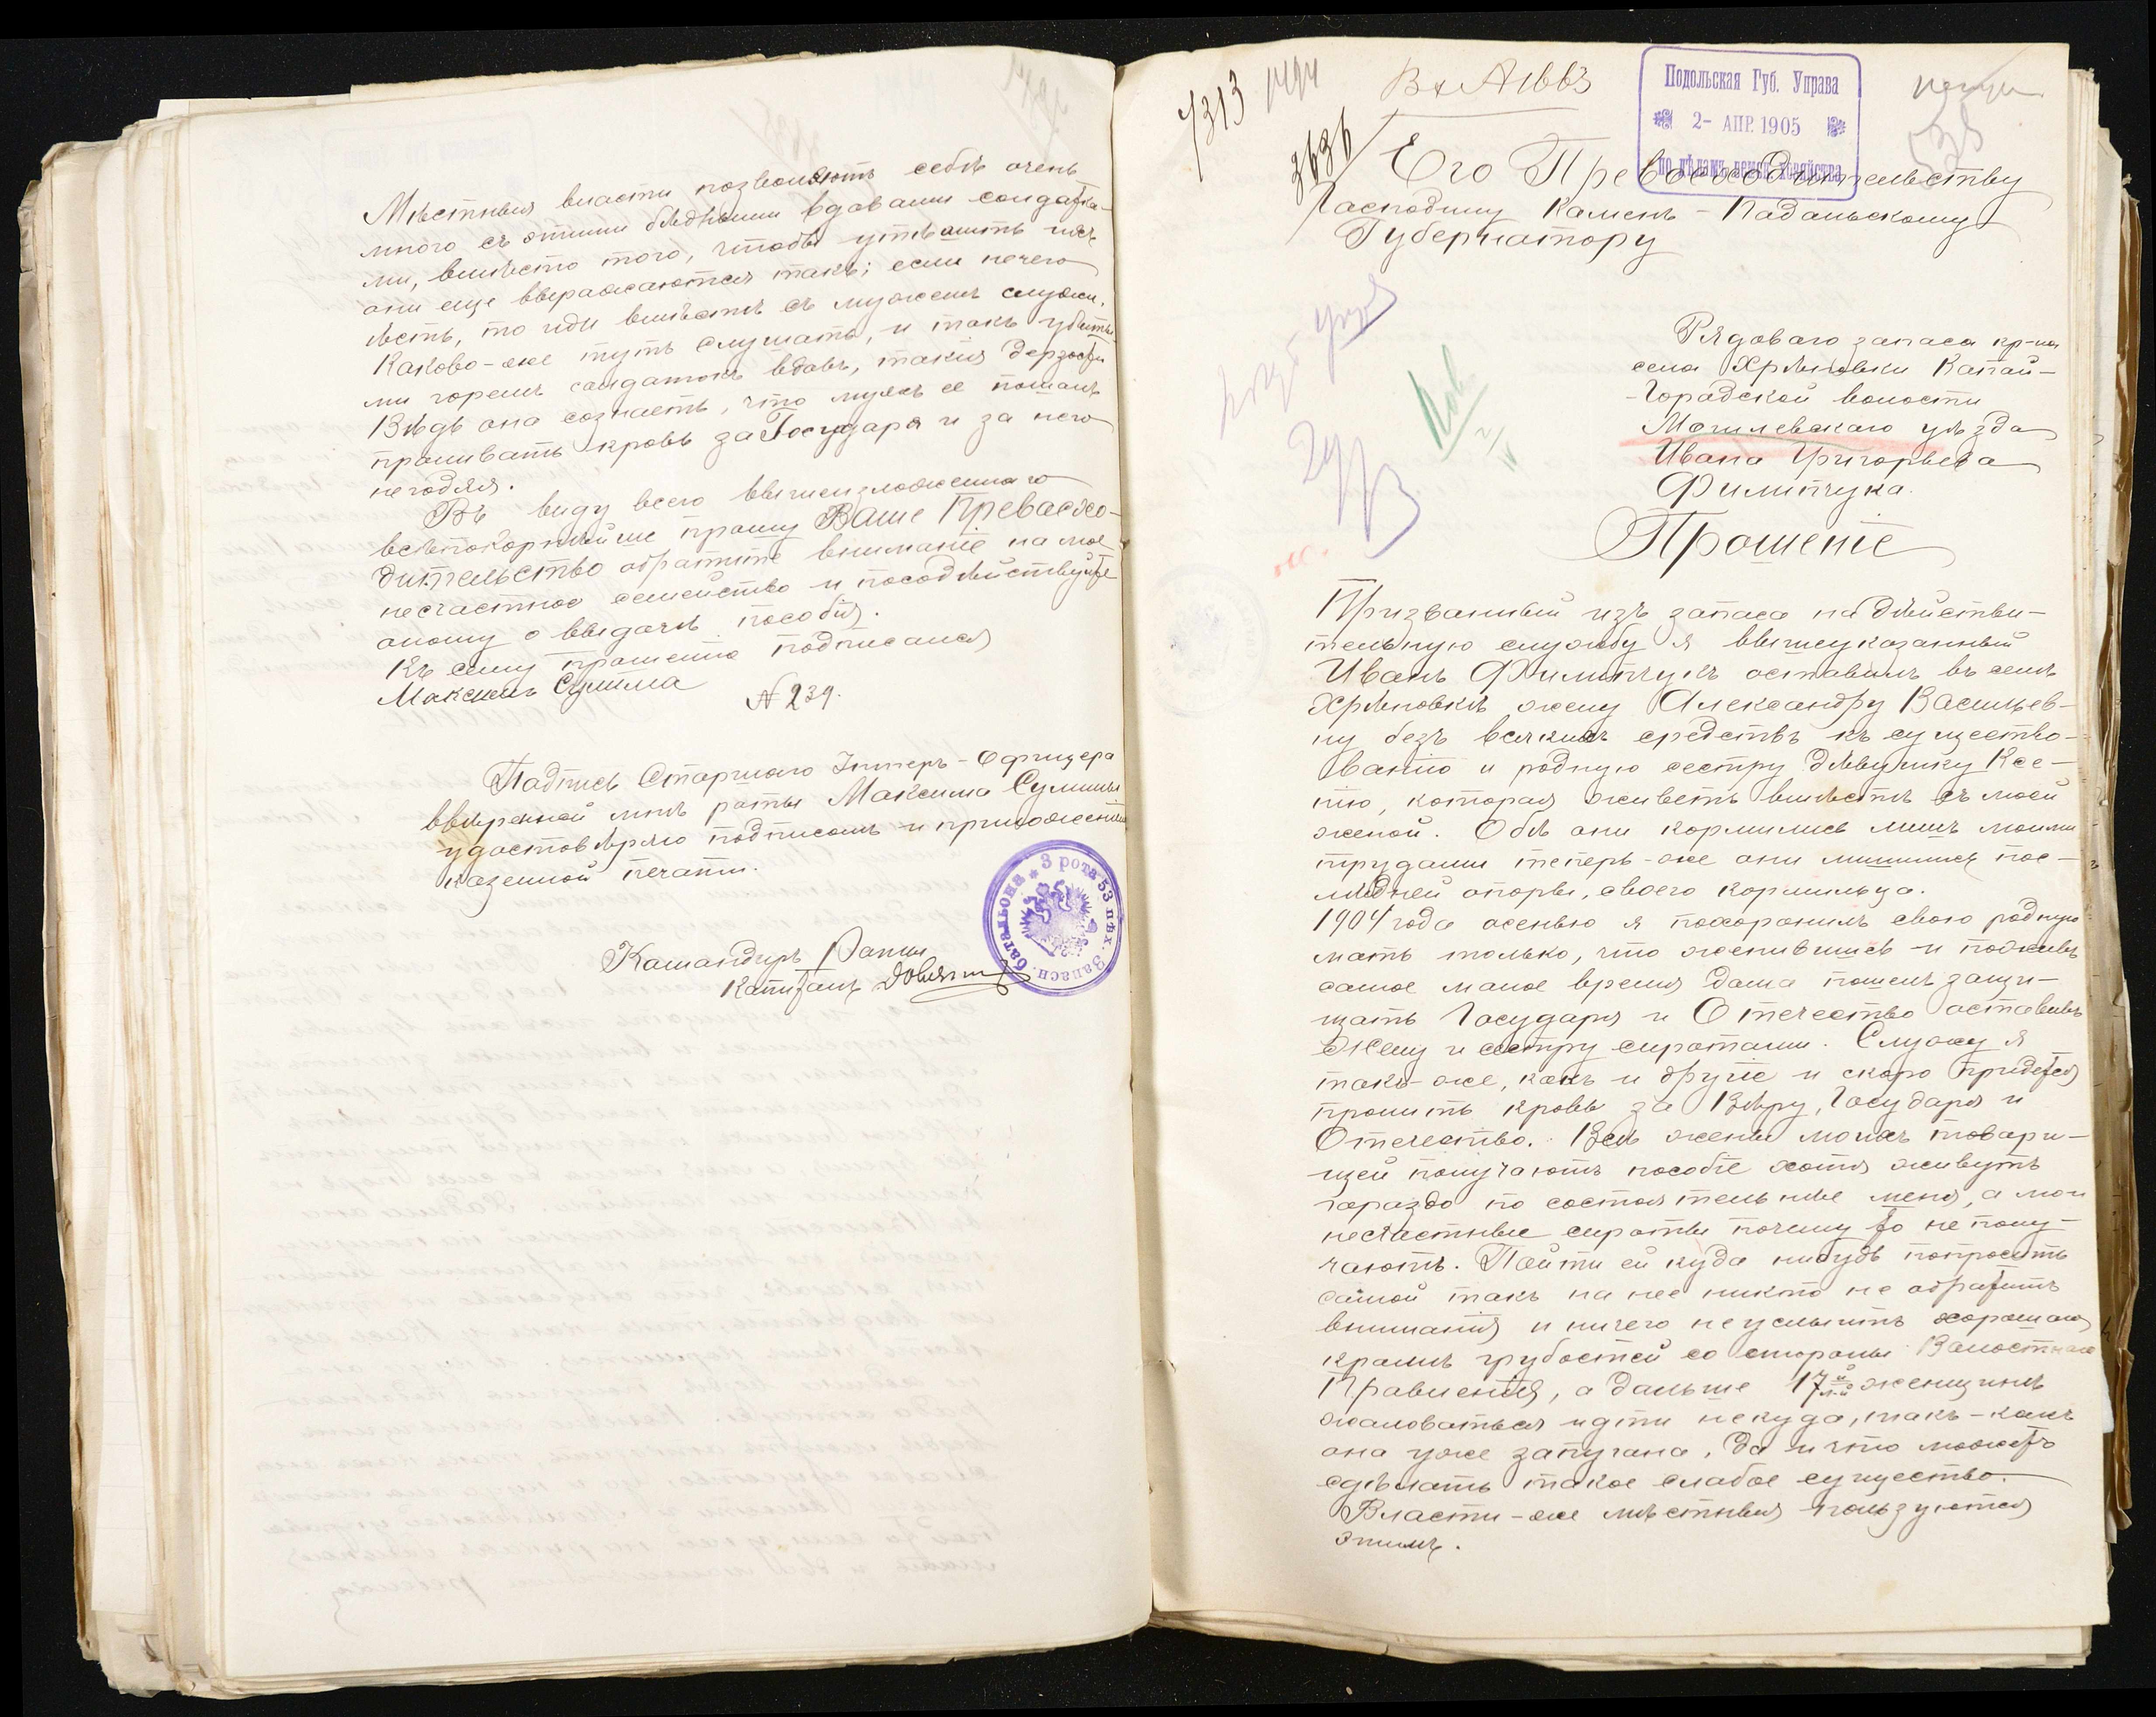 Мѣстныя власти позволяютъ себѣ очень
много съ этими бѣдными вдовами солдатка-
ми, вмѣсто того, чтобы утѣшить ихъ
они еще выражаются такъ; если нечего
ѣсть, то иди вмѣстѣ съ мужемъ служи.
Каково-же тутъ слушать, и такъ убиты-
ми горемъ солдаткъ вдовъ, такія дерзости
Вѣдь она сознаетъ, что мужъ ее пошолъ
проливать кровь за Государя и за него
негодяя.
Въ виду всего вышеизложеннаго
всѣпокорнѣйше прошу Ваше Превасхо-
дительство обратите вниманіе на мое
несчастное семейство и посодѣйствуйте
оному о выдачѣ пособія.
Къ сему прошенію подписался
Максимъ Сулима
№ 239.
Падпись Старшаго Унтеръ-Офицера
ввѣренной мнѣ роты Максима Сулимы
удостовѣряю подписомъ и приложеніемъ
казенной печати.
Командиръ Роты
Капитанъ
3 рота 53 пѣх. Запасн. баталіона
7313 1494
Вх № 1663
Подольская Губ. Управа
2- АПР. 1905
по дѣламъ земск. хозяйства
3636
538
Его Превосходительству
Господину Каменъ-Падольскому
Губернатору
Рядоваго запаса кр-на
села Хрѣновки Капай-
-Городской волости
Могилевскаго уѣзда
Ивана Григорьева
Филипчука.
Прошеніе
Призванный изъ запаса на дѣйстви-
тельную службу я вышеуказанный
Иванъ Филипчукъ оставилъ въ селѣ
Хрѣновкѣ жену Александру Васильев-
ну безъ всякихъ средствъ къ существо-
ванію и родную сестру дѣвушку Ксе-
нію, которая живетъ вмѣстѣ съ моей
женой. Обѣ они кормились лишъ моими
трудами теперь-же они лишились пос-
лѣдней опоры, своего кормильца.
1904 года осенью я похоронилъ свою родную
мать только, что женившись и поживъ
самое малое время дома пошелъ защи-
щать Государя и Отечество оставивъ
Жену и сестру сиротами. Служу я
такъ-же, какъ и другіе и скоро придется
пролить кровь за Вѣру, Государя и
Отечество. Всѣ жены моихъ товари-
щей получаютъ пособіе хотя живутъ
гораздо по состоятельнѣе меня, а мои
несчастные сироты почему то не полу-
чаютъ. Пойти ей куда нибудь попросить
самой такъ на нее никто не обратитъ
вниманія и ничего неуслышитъ хорошаго
кромѣ грубостей со стороны Волостнаго
Правленія, а дальше 17й л-й женщинѣ
жаловаться идти некуда, такъ-какъ
она уже запугана, да и что можетъ
сдѣлать такое слабое существо.
Власти-же мѣстныя пользуются
этимъ.